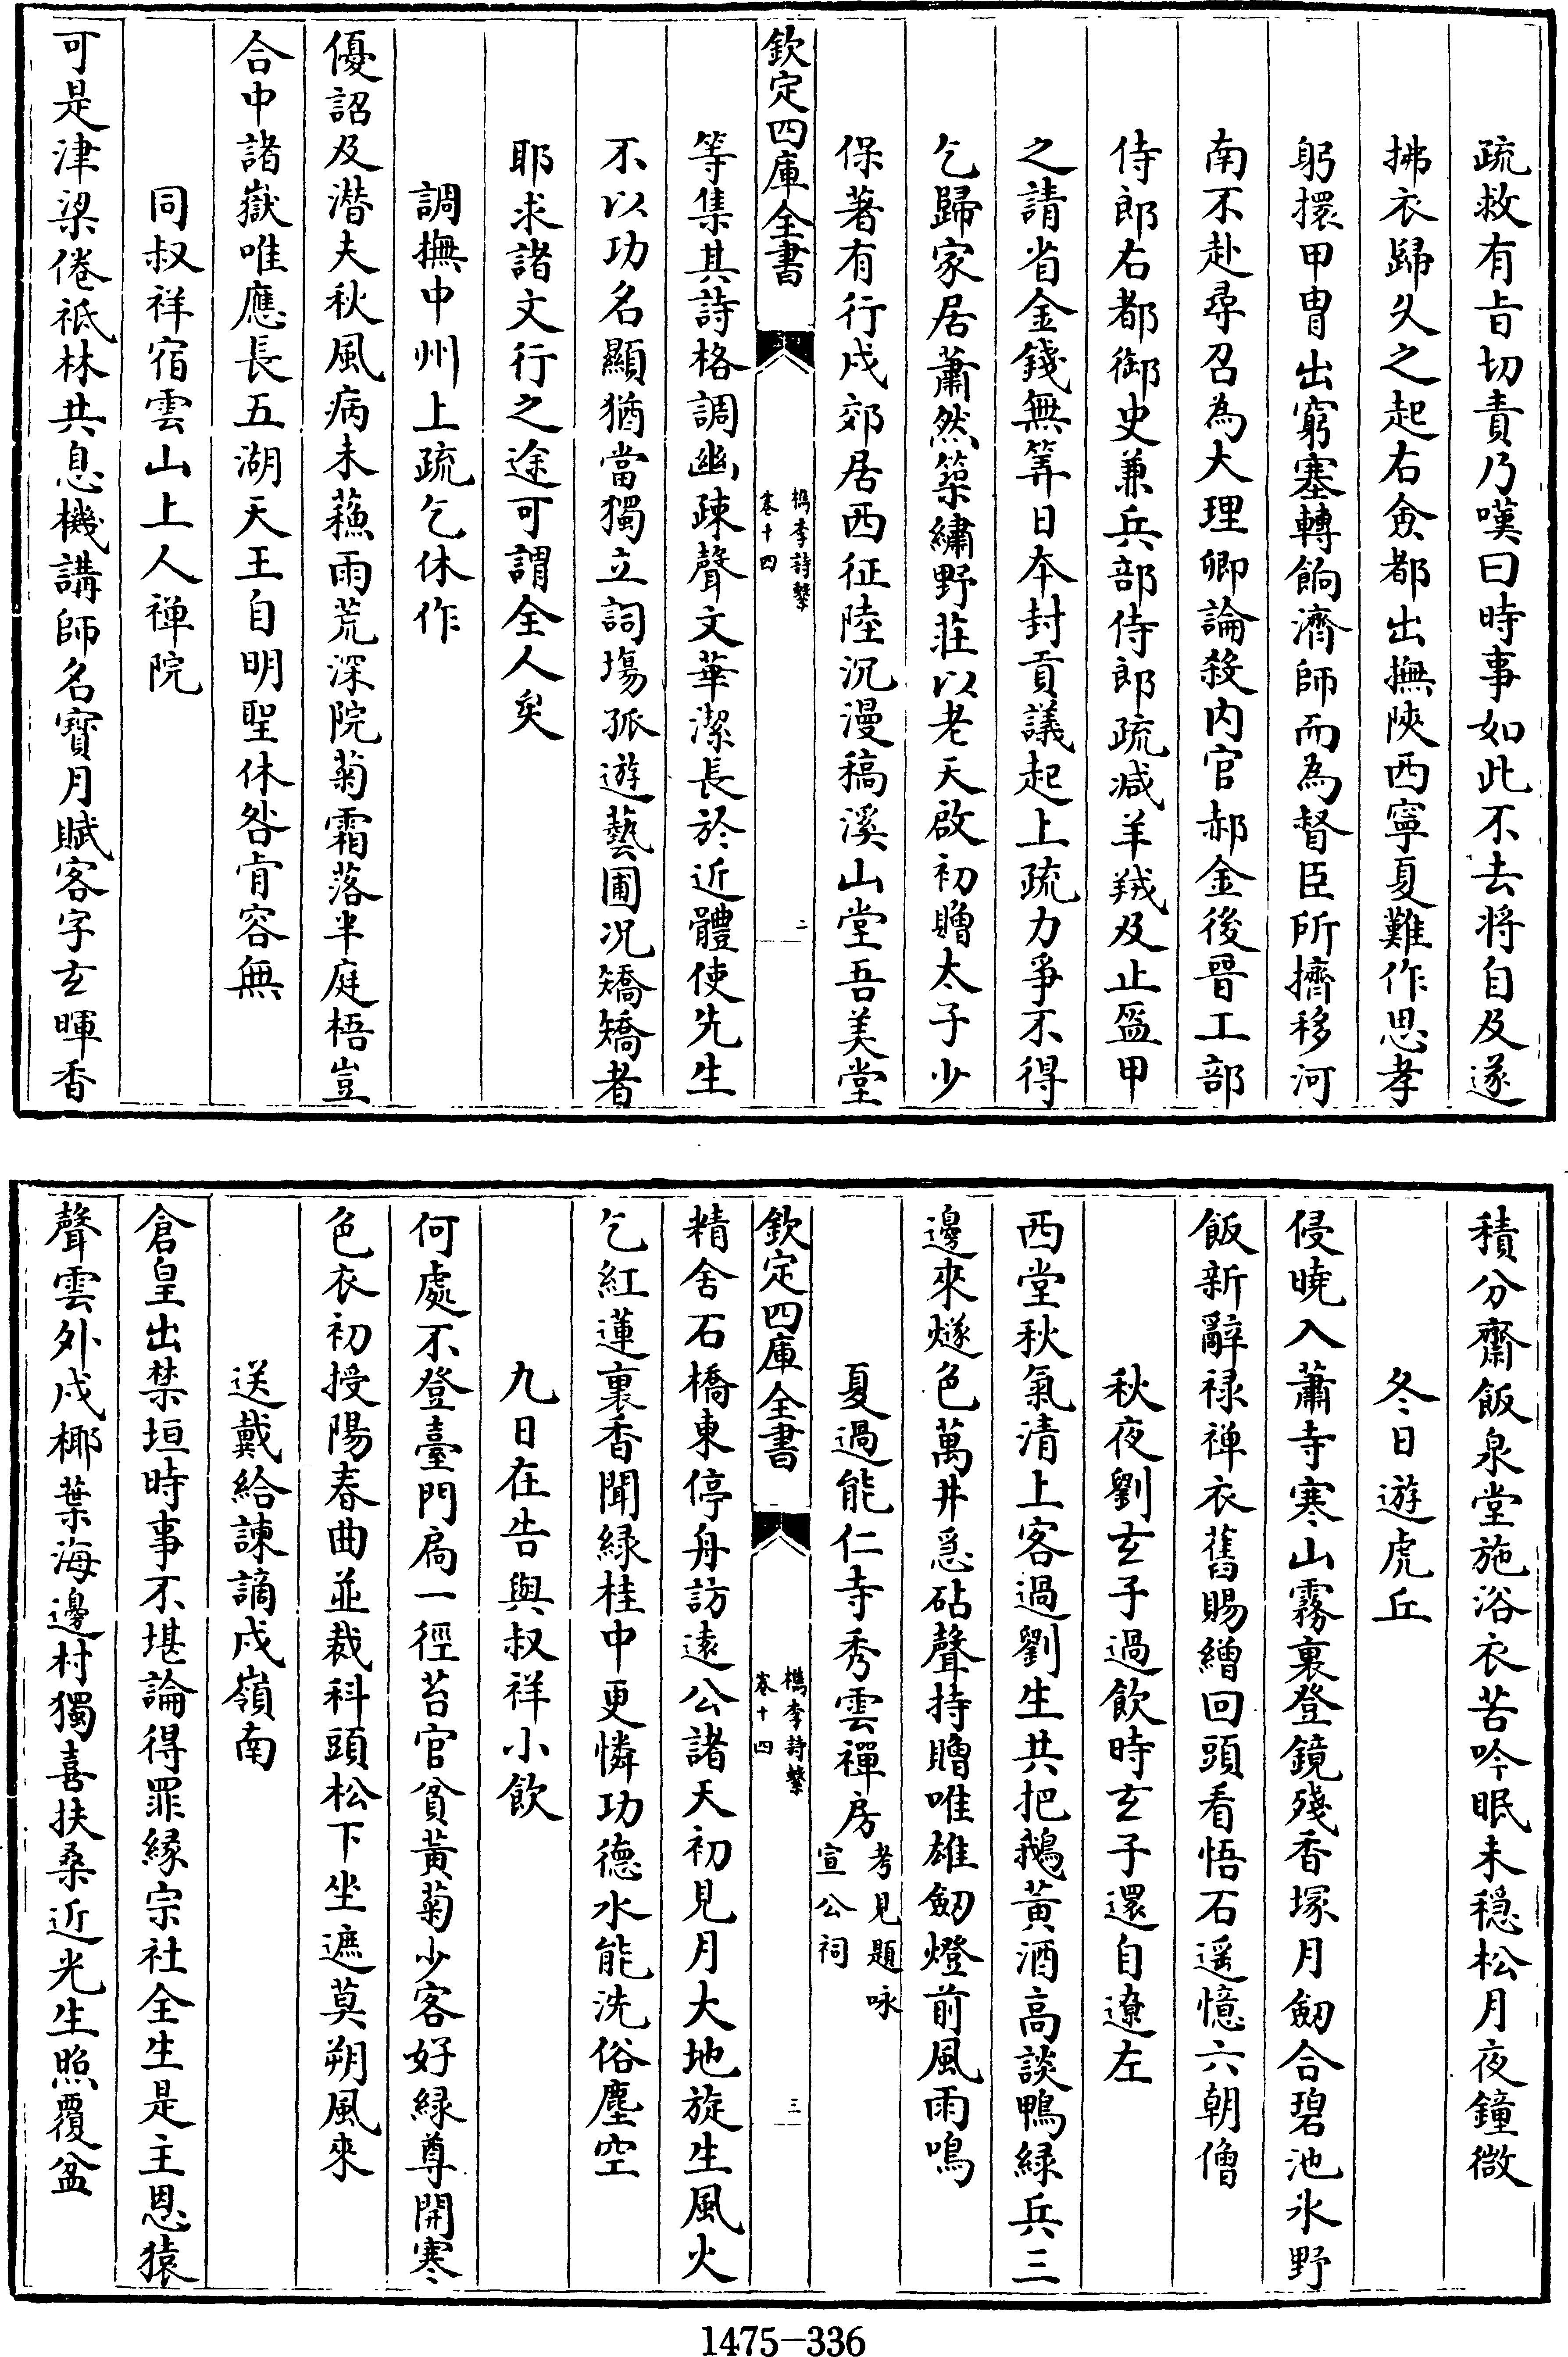 疏救有旨切責乃嘆曰時事如此不去将自及遂
拂衣歸久之起右僉都出撫陜西寧夏難作思孝
躬擐甲冑出窮塞轉餉濟師而為督臣所擠移河
南不赴尋召為大理卿論殺内官郝金後晉工部
侍郎右都御史兼兵部侍郎疏減羊羢及止盔甲
之請省金錢無筭日本封貢議起上疏力爭不得
乞歸家居蕭然築繡野莊以老天啟初贈太子少
保著有行戍郊居西征陸沉漫稿溪山堂吾美堂
欽定四庫全書
檇李詩繫
卷十四
二
等集其詩格調幽疎聲文華潔長於近體使先生
不以功名顯猶當獨立詞塲孤遊藝圃况矯矯者
耶求諸文行之途可謂全人矣
調撫中州上疏乞休作
優詔及潛夫秋風病未蘓雨荒深院菊霜落半庭梧豈
合中諸嶽唯應長五湖天王自明聖休咎肯容無
同叔祥宿雲山上人禪院
可是津梁倦祗林共息機講師名寶月賦客字玄暉香
積分齋飯泉堂施浴衣苦吟眠未穩松月夜鐘微
冬日遊虎丘
侵曉入蕭寺寒山霧裏登鏡殘香塚月劒合碧池氷野
飯新辭禄禅衣舊賜繒回頭看悟石遥憶六朝僧
秋夜劉玄子過飲時玄子還自遼左
西堂秋氣清上客過劉生共把鵝黄酒高談鴨緑兵三
邊來燧色萬井急砧聲持贈唯雄劒燈前風雨鳴
夏過能仁寺秀雲禪房考見題咏
宣公祠
欽定四庫全書
檇李詩繫
卷十四
三
精舍石橋東停舟訪遠公諸天初見月大地旋生風火
乞紅蓮裏香聞緑桂中更憐功德水能洗俗塵空
九日在告與叔祥小飲
何處不登臺門扄一徑苔官貧黄菊少客好緑尊開寒
色衣初授陽春曲並裁科頭松下坐遮莫朔風來
送戴給諫謫戍嶺南
倉皇出禁垣時事不堪論得罪緣宗社全生是主恩猿
聲雲外戍椰葉海邊村獨喜扶桑近光生照覆盆
1475-336